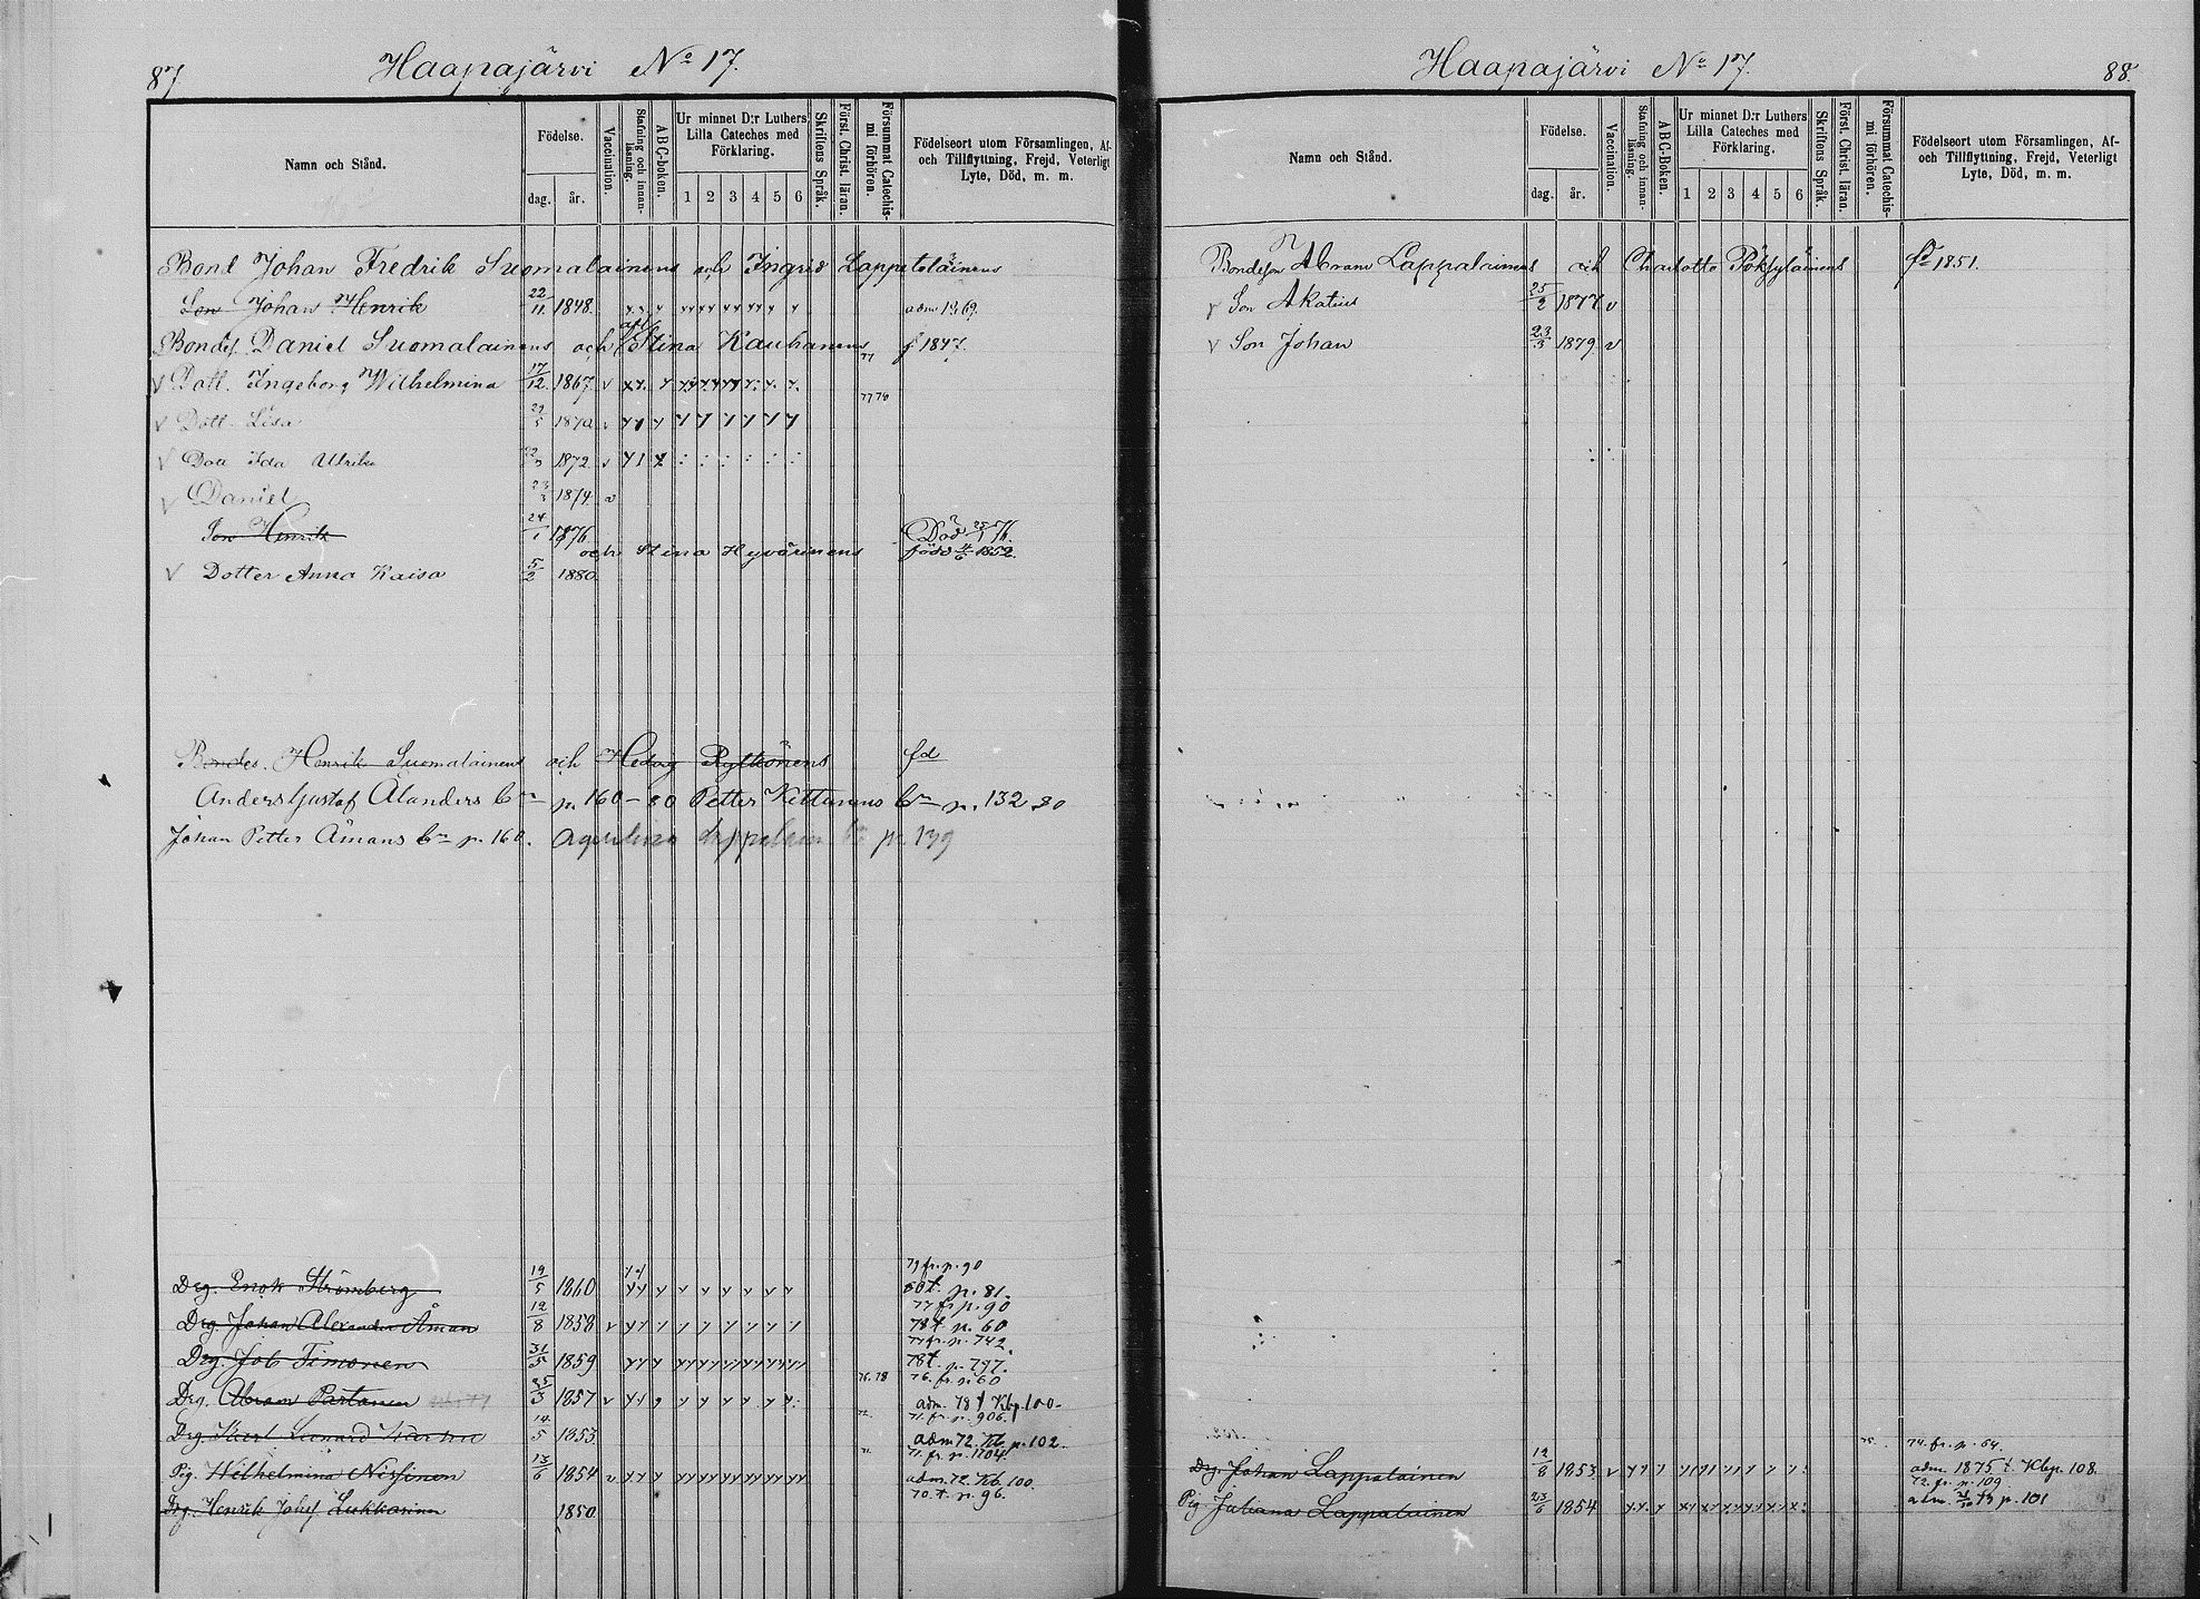 87
Haapajärvi No 17.
Namn och Stånd.
Födelse.
dag.
år.
Vaccination.
Stafning och innanläsning.
ABC-boken.
Ur minnet D:r Luthers Lilla Cateches med Förklaring.
1 2 3 4 5 6
Skriftens Språk.
Först. Christ. läran.
Försummat Catechismi förhören.
Födelseort utom Församlingen, Af- och Tillflyttning, Frejd, Veterligt Lyte, Död, m. m.
Bond Johan Fredrik Suomalainens och Ingrid Lappetelainens
Son Johan Henrik 22/11 1848. adm. 1869.
Bondes. Daniel Suomalainens och Stina Kauhanens f. 1847.
v Dott. Ingeborg Wilhelmina 17/12 1867. v 77
v Dott. Lisa 29/5 1870 v 77 76
v Dott Ida Ulrika 1872. v
v Daniel 23/3 1874. v
Son Henrik 24/1 1876. Död 76.
och Stina Hyvärinens född 1852.
v Dotter Anna Kaisa 5/2 1880
Bondes. Henrik Suomalainens och Hedvig Rytkönens fd
Anders Gustaf Ålanders bn p. 160 - 80 Petter Kettunens bn p. 132 80
Johan Petter Åmans bn p. 160. p. 139
79 fr. p. 90
Drg. Enok Strömberg 19/5 1860 80 t. p. 81.
77 fr p. 90
Drg. Johan Alexander Åman 12/8 1858 v 78 t. p. 60
77 fr. p. 742
Drg. Job Timonen 31/5 1859 78 t. p. 747.
76. 78 76. fr. p. 60
Drg. Abram Partanen 25/3 1857 v adm. 78 t Kbp. 100.
72. 71. fr. p. 906.
Drg. Karl Leonard 14/5 1853 adm 72. Kb. p. 102.
71. 71. fr. p. 1104.
Pig. Wilhelmina Nissinen 13/6 1854 v adm. 72. Kb. 100.
70. t. p. 96.
Drg. Henrik Johs Lukkarinen 1850
Haapajärvi No 17.
88.
Namn och Stånd.
Födelse.
dag.
år.
Vaccination.
Stafning och innanläsning.
ABC-Boken.
Ur minnet D:r Luthers Lilla Cateches med Förklaring.
1 2 3 4 5 6
Skriftens Språk.
Först. Christ. läran.
Försummat Catechismi förhören.
Födelseort utom Församlingen, Af- och Tillflyttning, Frejd, Veterligt Lyte, Död, m. m.
Bondeson Abram Lappalainens och Charlotta Pöksyläinens fd 1851.
v Son Akatius 25/2 1877 v
v Son Johan 23/3 1879 v
75. 74. fr. p. 64.
Drg. Johan Lappalainen 12/8 1853 v adm. 1875 t. Kbp. 108.
72. fr. p. 109
Pig. Juliana Lappalainen 23/6 1854 adm. p. 101